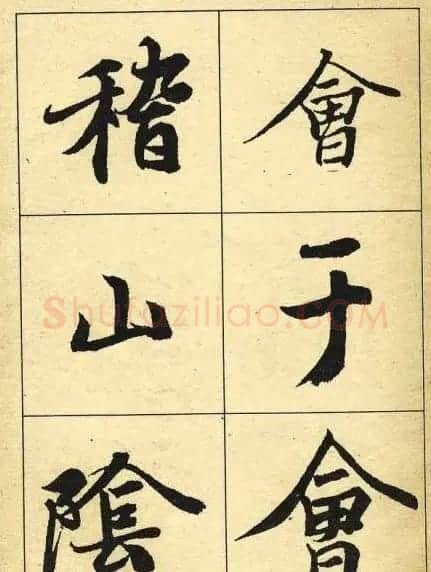 會于會
稽山陰
Shufaziliao.COM